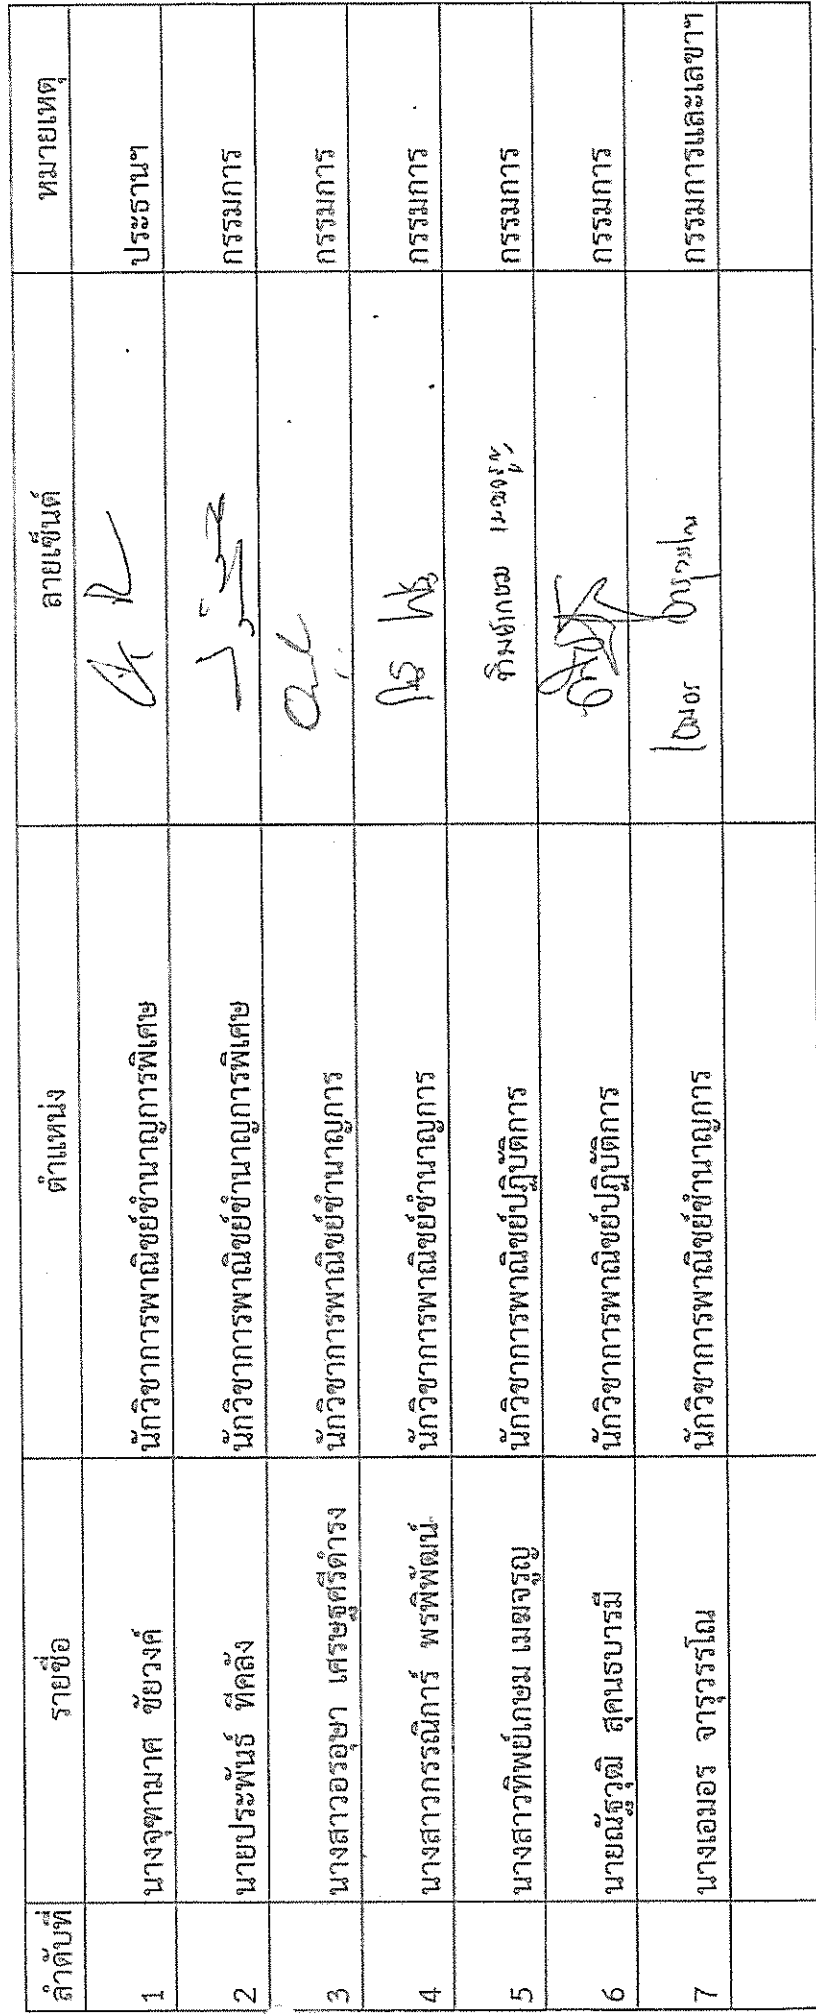 ลำดับที่ รายชื่อ ตำแหน่ง ลายเซ็นต์ หมายเหตุ
1 นางจุฑามาศ ชัยวงค์ นักวิชาการพาณิชย์ชำนาญการพิเศษ ประธานฯ
2 นายประพันธ์ ทีคลัง นักวิชาการพาณิชย์ชำนาญการพิเศษ กรรมการ
3 นางสาวอรอุษา เศรษฐศรีดำรง นักวิชาการพาณิชย์ชำนาญการ กรรมการ
4 นางสาวกรรณิการ์ พรพิพัฒน์ นักวิชาการพาณิชย์ชำนาญการ กรรมการ
5 นางสาวทิพย์เกษม เมฆจรูญ นักวิชาการพาณิชย์ปฏิบัติการ ทิพย์เกษม เมฆจรูญ กรรมการ
6 นายณัฐวุฒิ สุคนธบารมี นักวิชาการพาณิชย์ปฏิบัติการ กรรมการ
7 นางเอมอร จารุวรรโณ นักวิชาการพาณิชย์ชำนาญการ เอมอร จารุวรรโณ กรรมการและเลขาฯ